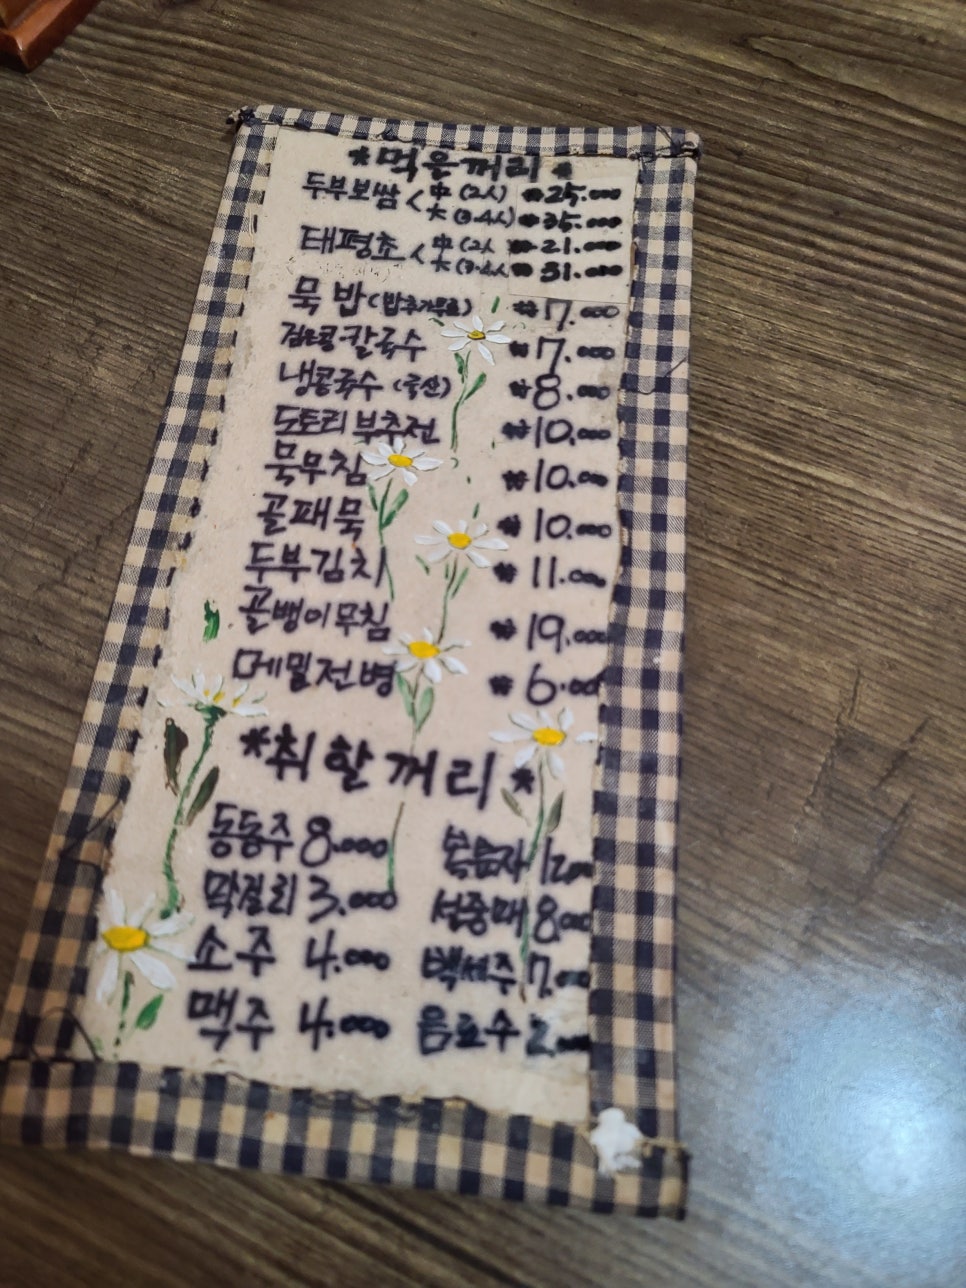 *먹을꺼리*
두부보쌈 < 中 (2人) ₩25.000
大 (3.4人) ₩35.000
태평초 < 中 (2人 ₩21.000
大 (3.4人 ₩31.000
묵밥 (밥추가무료) ₩7.000
검은콩칼국수 ₩7.000
냉콩국수 (국산) ₩8.000
도토리부추전 ₩10.000
묵무침 ₩10.000
골패묵 ₩10.000
두부김치 ₩11.000
골뱅이무침 ₩19.000
메밀전병 ₩6.000
*취할꺼리*
동동주 8.000 복분자 12.000
막걸리 3.000 석중매 8.000
소주 4.000 백세주 7.000
맥주 4.000 음료수 2.000